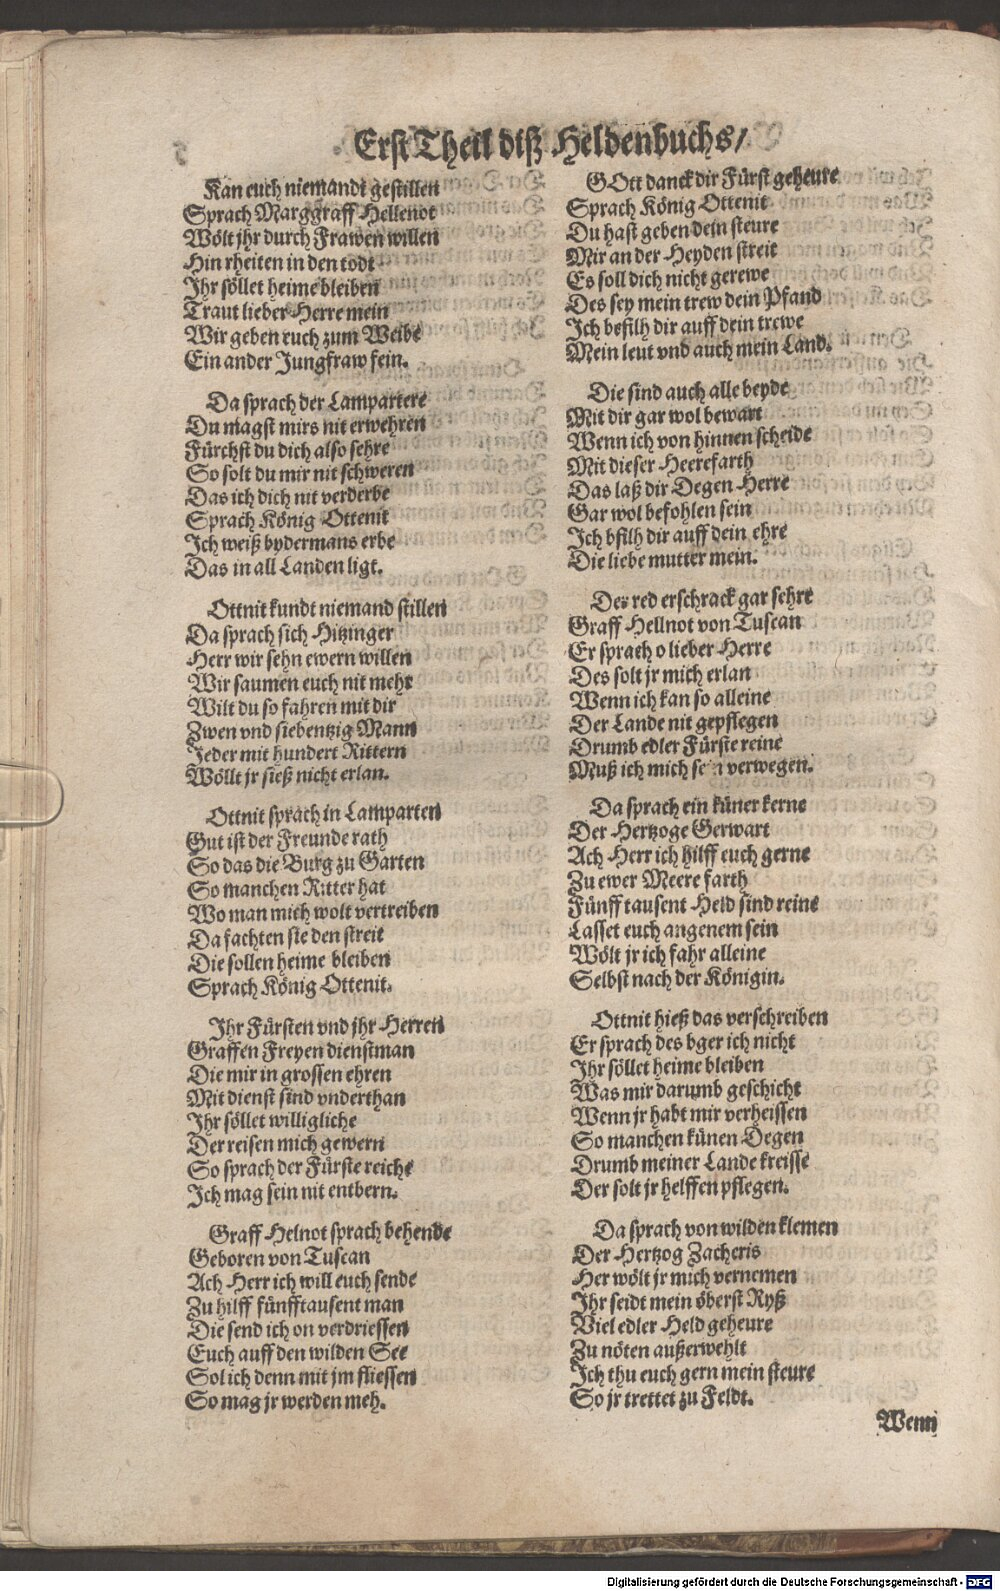 Erst Theil diß Heldenbuchs/
Kan euch niemandt gestillen
Sprach Marggraff Hellenot
Wölt jhr durch Frawen willen
Hin rheiten in den todt
Jhr söllet heime bleiben
Traut lieber Herre mein
Wir geben euch zum Weibe
Ein ander Jungfraw fein.
Da sprach der Lampartere
Du magst mirs nit erwehren
Fürchst du dich also sehre
So solt du mir nit schweren
Das ich dich nit verderbe
Sprach König Ottenit
Ich weiß bydermans erbe
Das in all Landen ligt.
Ottnit kundt niemand stillen
Da sprach sich Hitzinger
Herr wir sehn ewern willen
Wir saumen euch nit mehr
Wilt du so fahren mit dir
Zwen vnd siebentzig Mann
Jeder mit hundert Rittern
Wöllt jr sieß nicht erlan.
Ottnit sprach in Lamparten
Gut ist der Freunde rath
So das die Burg zu Garten
So manchen Ritter hat
Wo man mich wolt vertreiben
Da fachten sie den streit
Die sollen heime bleiben
Sprach König Ottenit.
Ihr Fürsten vnd jhr Herren
Graffen Freyen dienstman
Die mir in grossen ehren
Mit dienst sind vnderthan
Jhr söllet williglich​e
Der reisen mich gewern
So sprach der Fürste reiche
Ich mag sein nit entbern.
Graff Helnot sprach behende
Geboren von Tuscan
Ach Herr ich will euch sende
Zu hilff fünfftausent man
Die send ich on verdriessen
Euch auff den wilden See
Sol ich denn mit jm fliessen
So mag jr werden meh.
GOtt danck dir Fürst geheure
Sprach König Ottenit
Du hast geben dein steure
Mir an der Heyden streit
Es soll dich nicht gerewe
Des sey mein trew dein Pfand
Ich befilh dir auff dein trewe
Mein leut vnd auch mein Land.
Die sind auch alle beyde
Mit dir gar wol bewart
Wenn ich von hinnen scheide
Mit dieser Heerefarth
Das laß dir Degen Herre
Gar wol befohlen sein
Ich bfilh dir auff dein ehre
Die liebe mutter mein.
Der red erschrack gar sehre
Graff Hellnot von Tuscan
Er sprach o lieber Herre
Des solt jr mich erlan
Wenn ich kan so alleine
Der Lande nit gepflegen
Drumb edler Fürste reine
Muß ich mich sein verwegen.
Da sprach ein küner kerne
Der Hertzoge Gerwart
Ach Herr ich hilff euch gerne
Zu ewer Meere farth
Fünff tausent Held sind reine
Lasset euch angenem sein
Wölt jr ich fahr alleine
Selbst nach der Königin.
Ottnit hieß das verschreiben
Er sprach des bger ich nicht
Jhr söllet heime bleiben
Was mir darumb geschicht
Wenn jr habt mir verheissen
So manchen künen Degen
Drumb meiner Lande kreisse
Der solt jr helffen pflegen.
Da sprach von wilden klemen
Der Hertzog Zacheris
Her wölt jr mich vernemen
Jhr seidt mein öberst Ryß
Viel edler Held geheure
Zu nöten außerwehlt
Ich thu euch gern mein steure
So jr trettet zu Feldt.
Wenn
Digitalisierung gefördert durch die Deutsche Forschungsgemeinschaft - DFG